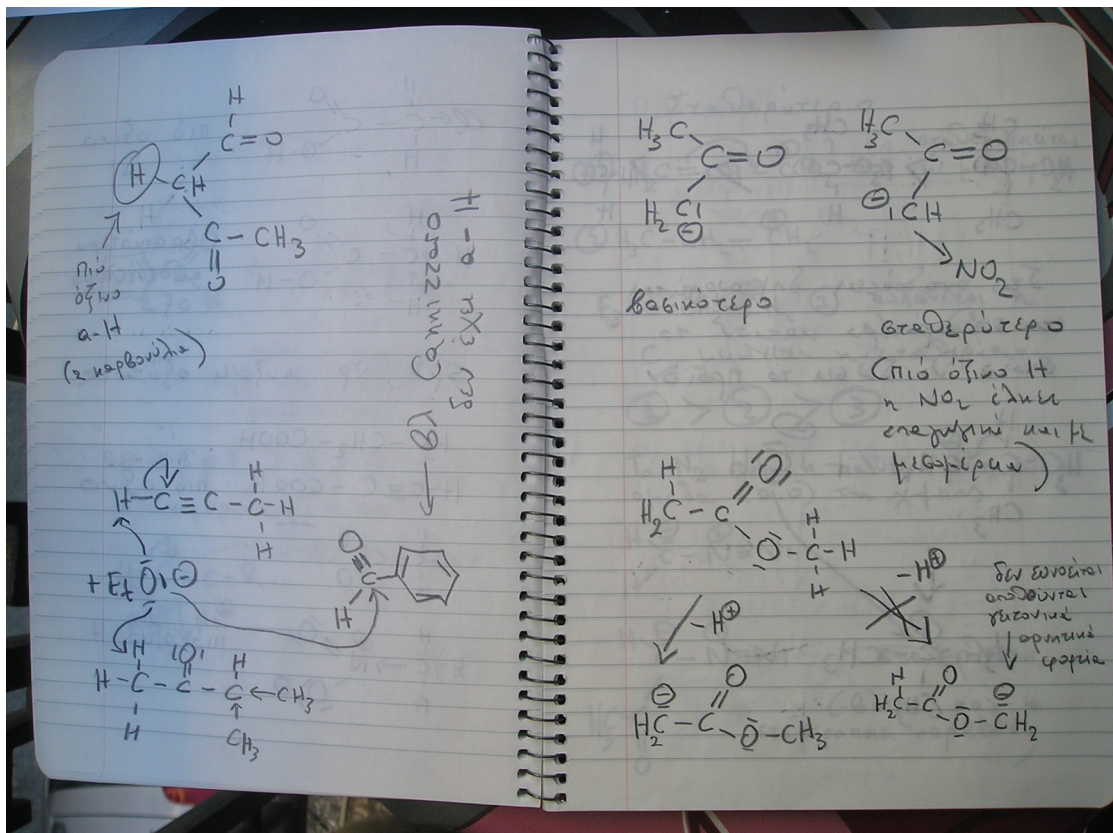 H
C=O
H
CH
C - CH₃
O
πιό
όξινο
α-H
(2 καρβονύλια)
δεν έχει α-H
H-C≡C-C-H
H
H
+ EtO ⊖
O
C
H
H
H-C-C-C←CH₃
O
H
H
CH₃
H₃C
C=O
H₂C ⊖
βασικότερο
H₃C
C=O
⊖ CH
NO₂
σταθερότερο
(πιό όξινο H
η NO₂ έλκει
επαγωγικά και με
μεσομέρεια)
H
O
H₂C-C
O-C-H
H
H
-H⊕
-H⊕
δεν ευνοείται
απωθούνται
γειτονικά
αρνητικά
φορτία
⊖
O
H₂C-C
O-CH₃
H
O
⊖
H₂C-C
O-CH₂